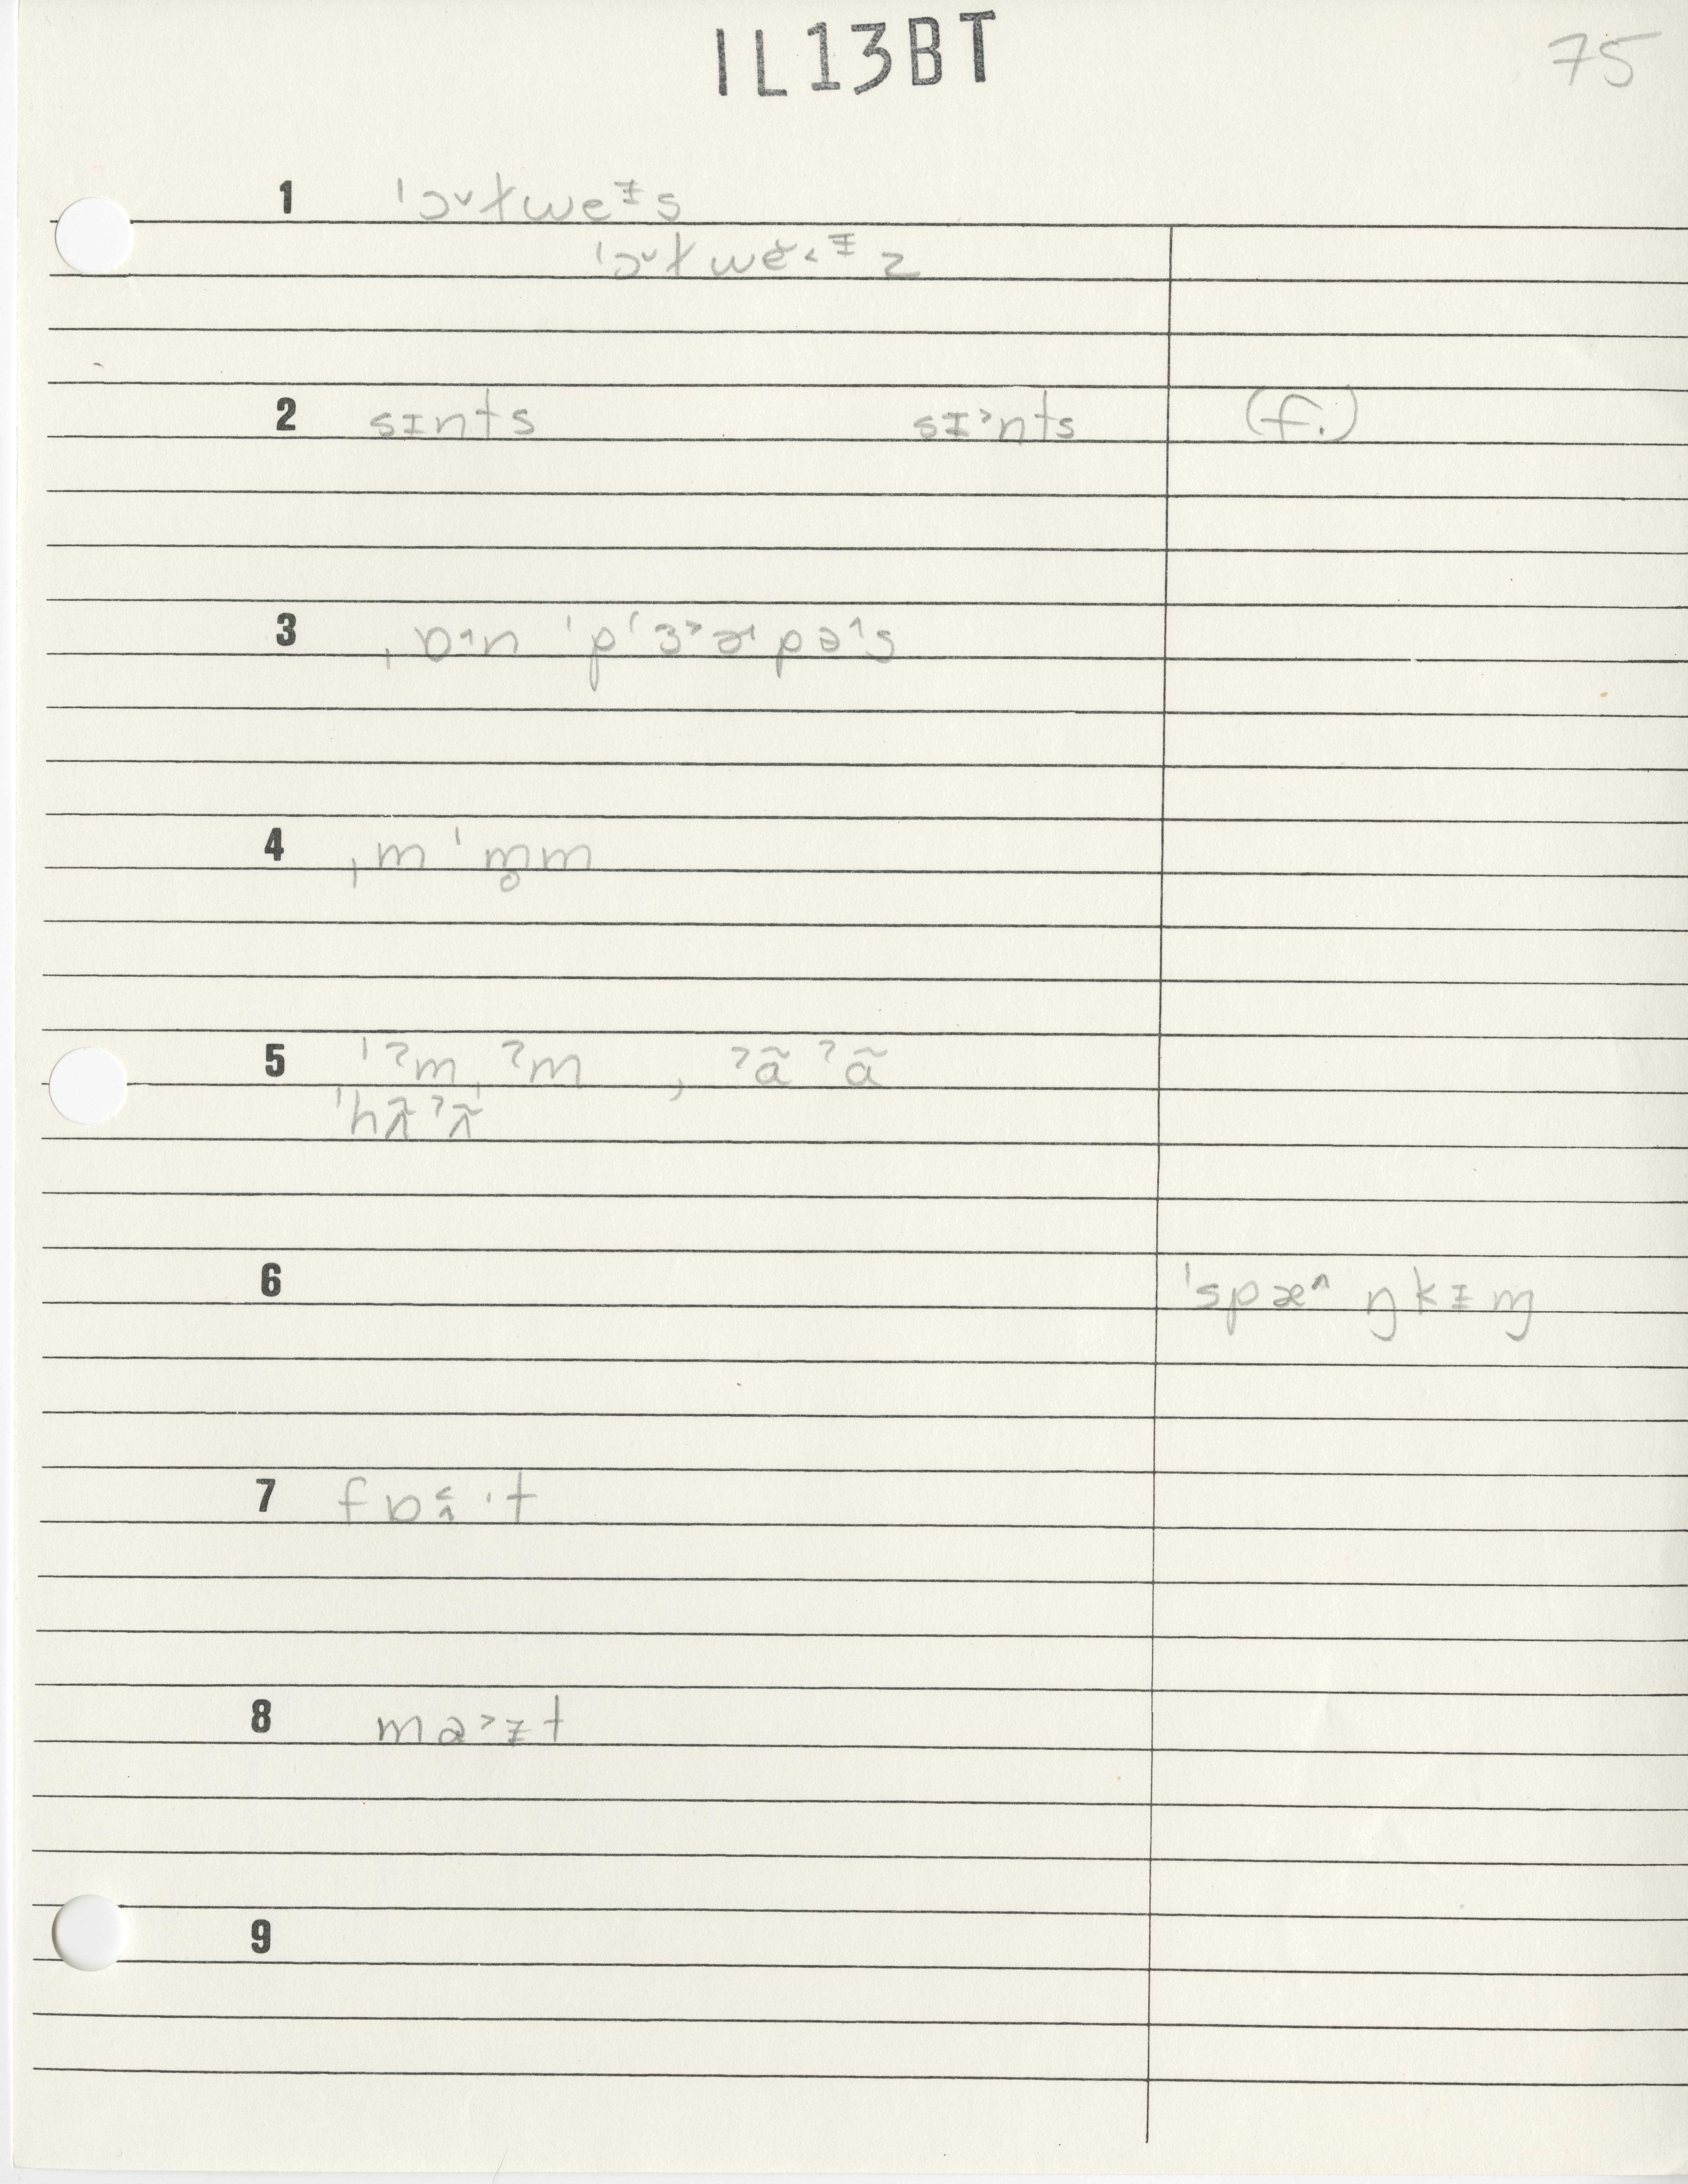 IL13BT
75
1 ˈɔ˅ɫweᵻs
ˈɔ˅ɫwe˂·ᵻz
2 sɪnts sɪ˃nts (f.)
3 ˌɒ˄n ˈpʻɜ˃ɚpə˄s
4 ˌm ˈm̥m
5 ˈʔm ˌʔm , ʔã ʔã
ˈhʌ̃ʔʌ̃
6 ˈspæ˄ŋkᵻŋ
7 fɒ˂˄·t
8 ma˃ᵻt
9